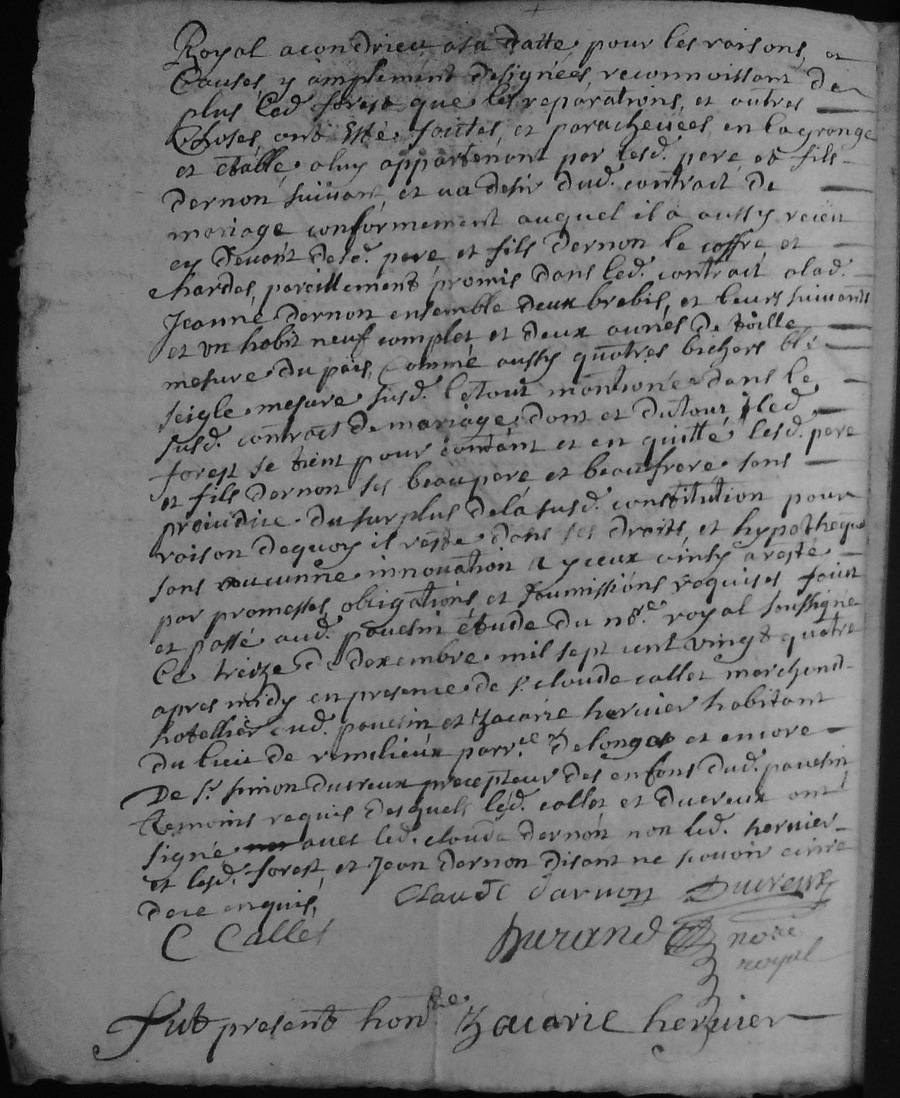 Royal a condrieu a sa datte pour les raisons, et
Causes y amplement designées reconnoissant de
plus led. forest que les reparations, et autres
Choses ont esté faittes, et parachevées en la grange
et etable a luy appartenant par lesd. pere et fils
dernon suivant et au desir dud. contrait de
mariage conformement auquel il a aussy receu
cy devant desd. pere et fils dernon le coffre et
hardes pareillement promis dans led. contrait a lad.
Jeanne dernon ensemble deux brebis, et leurs suivants
et un habit neuf complet et deux aunes de toille
mesure du païs, Comme aussy quatres bichers blé
seigle mesure susd. le tout mantioné dans le
susd. contrait de mariage, dont et du tout led.
forest se tient pour contant et en quitte lesd. pere
et fils dernon ses beaupere et beaufrere sans
preiudice du surplus de la susd. constitution pour
raison dequoy il reste dans ses droits, et hypotheque
sans aucunne innovation a yceux ainsy aresté
par promesses, obligations, et soumissions requises fait
et passé aud. pavesin étude du nre. royal soussigné
Ce treize de dexembre mil sept cent vingt quatre
apres midy en presence de sr. claude callet marchand
hotellier aud. pavesin et Zacarie hervier habitant
du lieu de remilieux parr.lle de longes et encore
De sr. simon ducreux precepteur des enfans dud. pavesin
temoins requis desquels led. callet et ducreux ont
signé avec led. claude dernon non led. hervier
et lesd. forest et Jean dernon disant ne scavoir ecrire
de ce enquis,
CLaude darnon Ducreux
C Callet Durand nore
royal
Fut present hon.ble Zacarie hervier